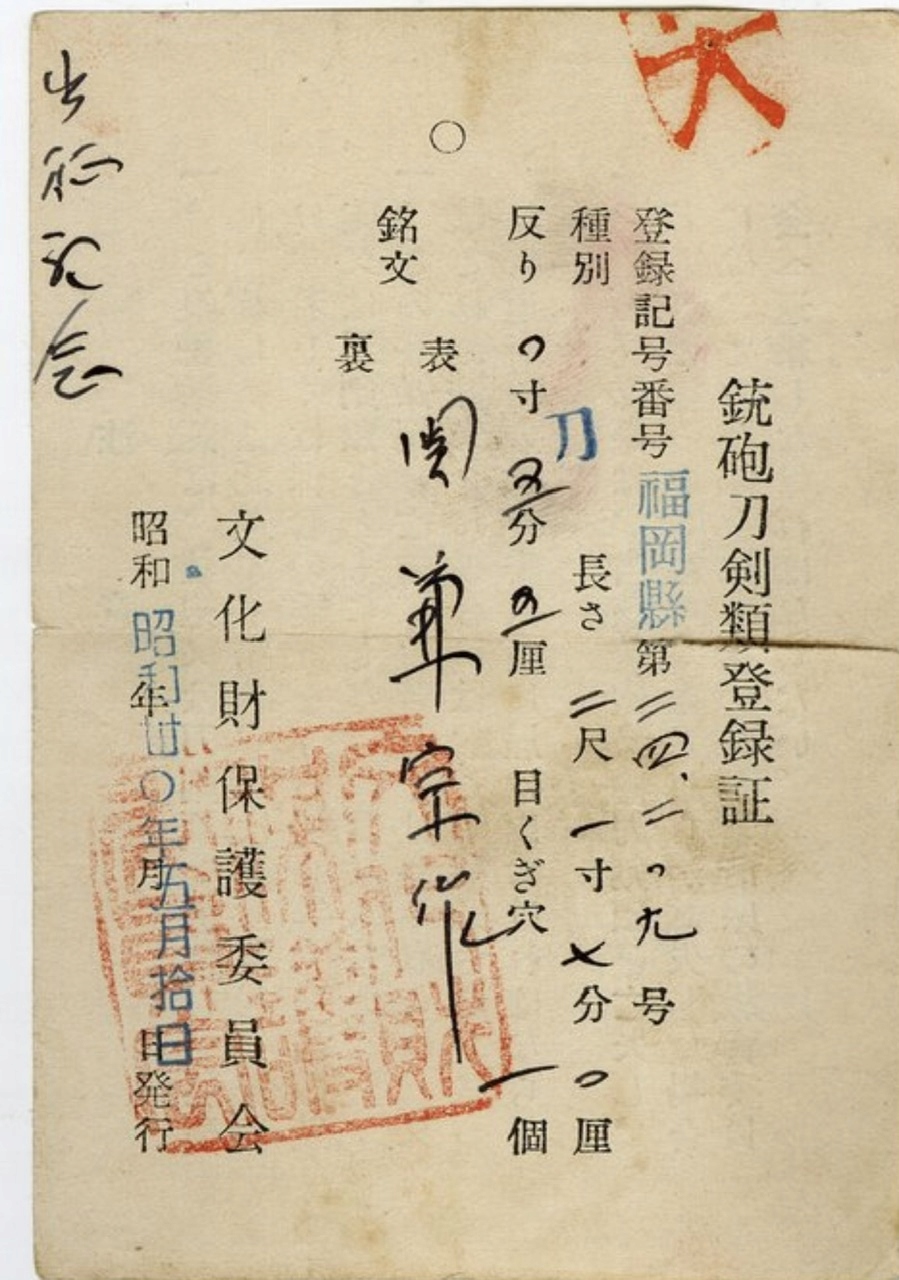 銃砲刀剣類登録証
登録記号番号 福岡縣 第二四、二〇九号
種別 刀 長さ 二尺一寸七分〇厘
反り 〇寸五分五厘 目くぎ穴 一個
銘文
表 関 兼宗作
裏
文化財保護委員会
昭和 年 月 日発行
昭和卅〇年五月拾日
大